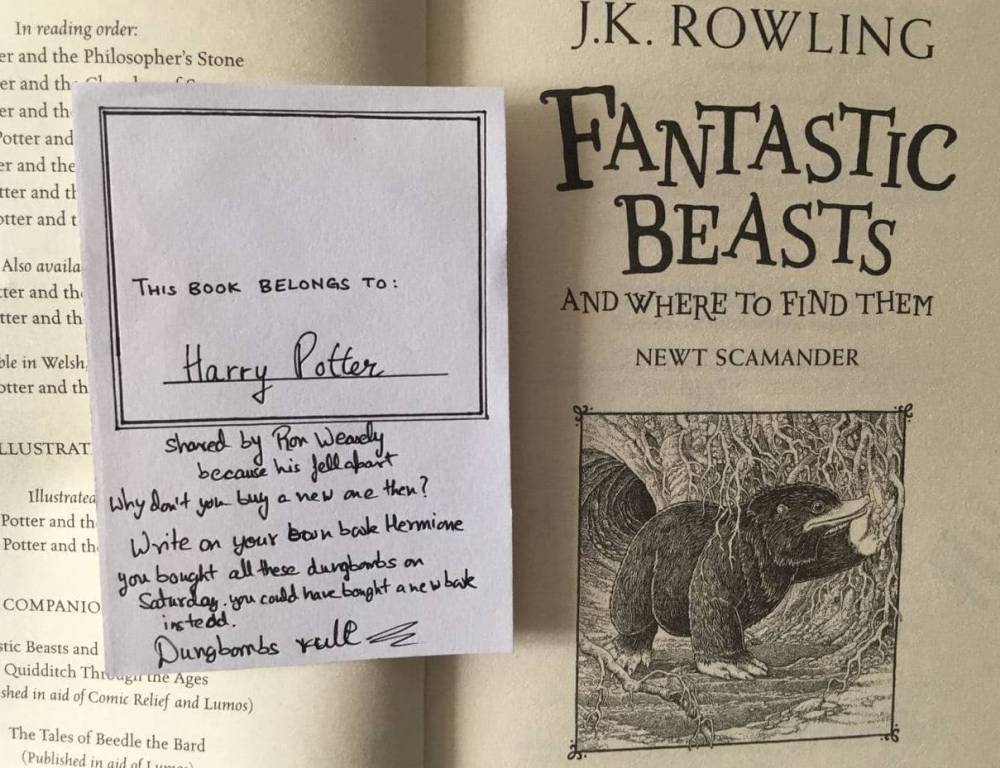 In reading order:
er and the Philosopher's Stone
er and th
er and th
Potter and
er and the
tter and th
otter and t
Also availa
tter and the
tter and th
ble in Welsh
otter and th
ILLUSTRAT
Illustrated
Potter and th
Potter and th
COMPANIO
stic Beasts and
Quidditch Through the Ages
shed in aid of Comic Relief and Lumos)
The Tales of Beedle the Bard
(Published in aid of Lumos)
THIS BOOK BELONGS TO:
Harry Potter
shared by Ron Weasely
because his fell apart
Why don't you buy a new one then?
Write on your own book Hermione
you bought all these dungbombs on
Saturday. you could have bought a new book
instead.
Dungbombs rule
J.K. ROWLING
FANTASTIC
BEASTS
AND WHERE TO FIND THEM
NEWT SCAMANDER